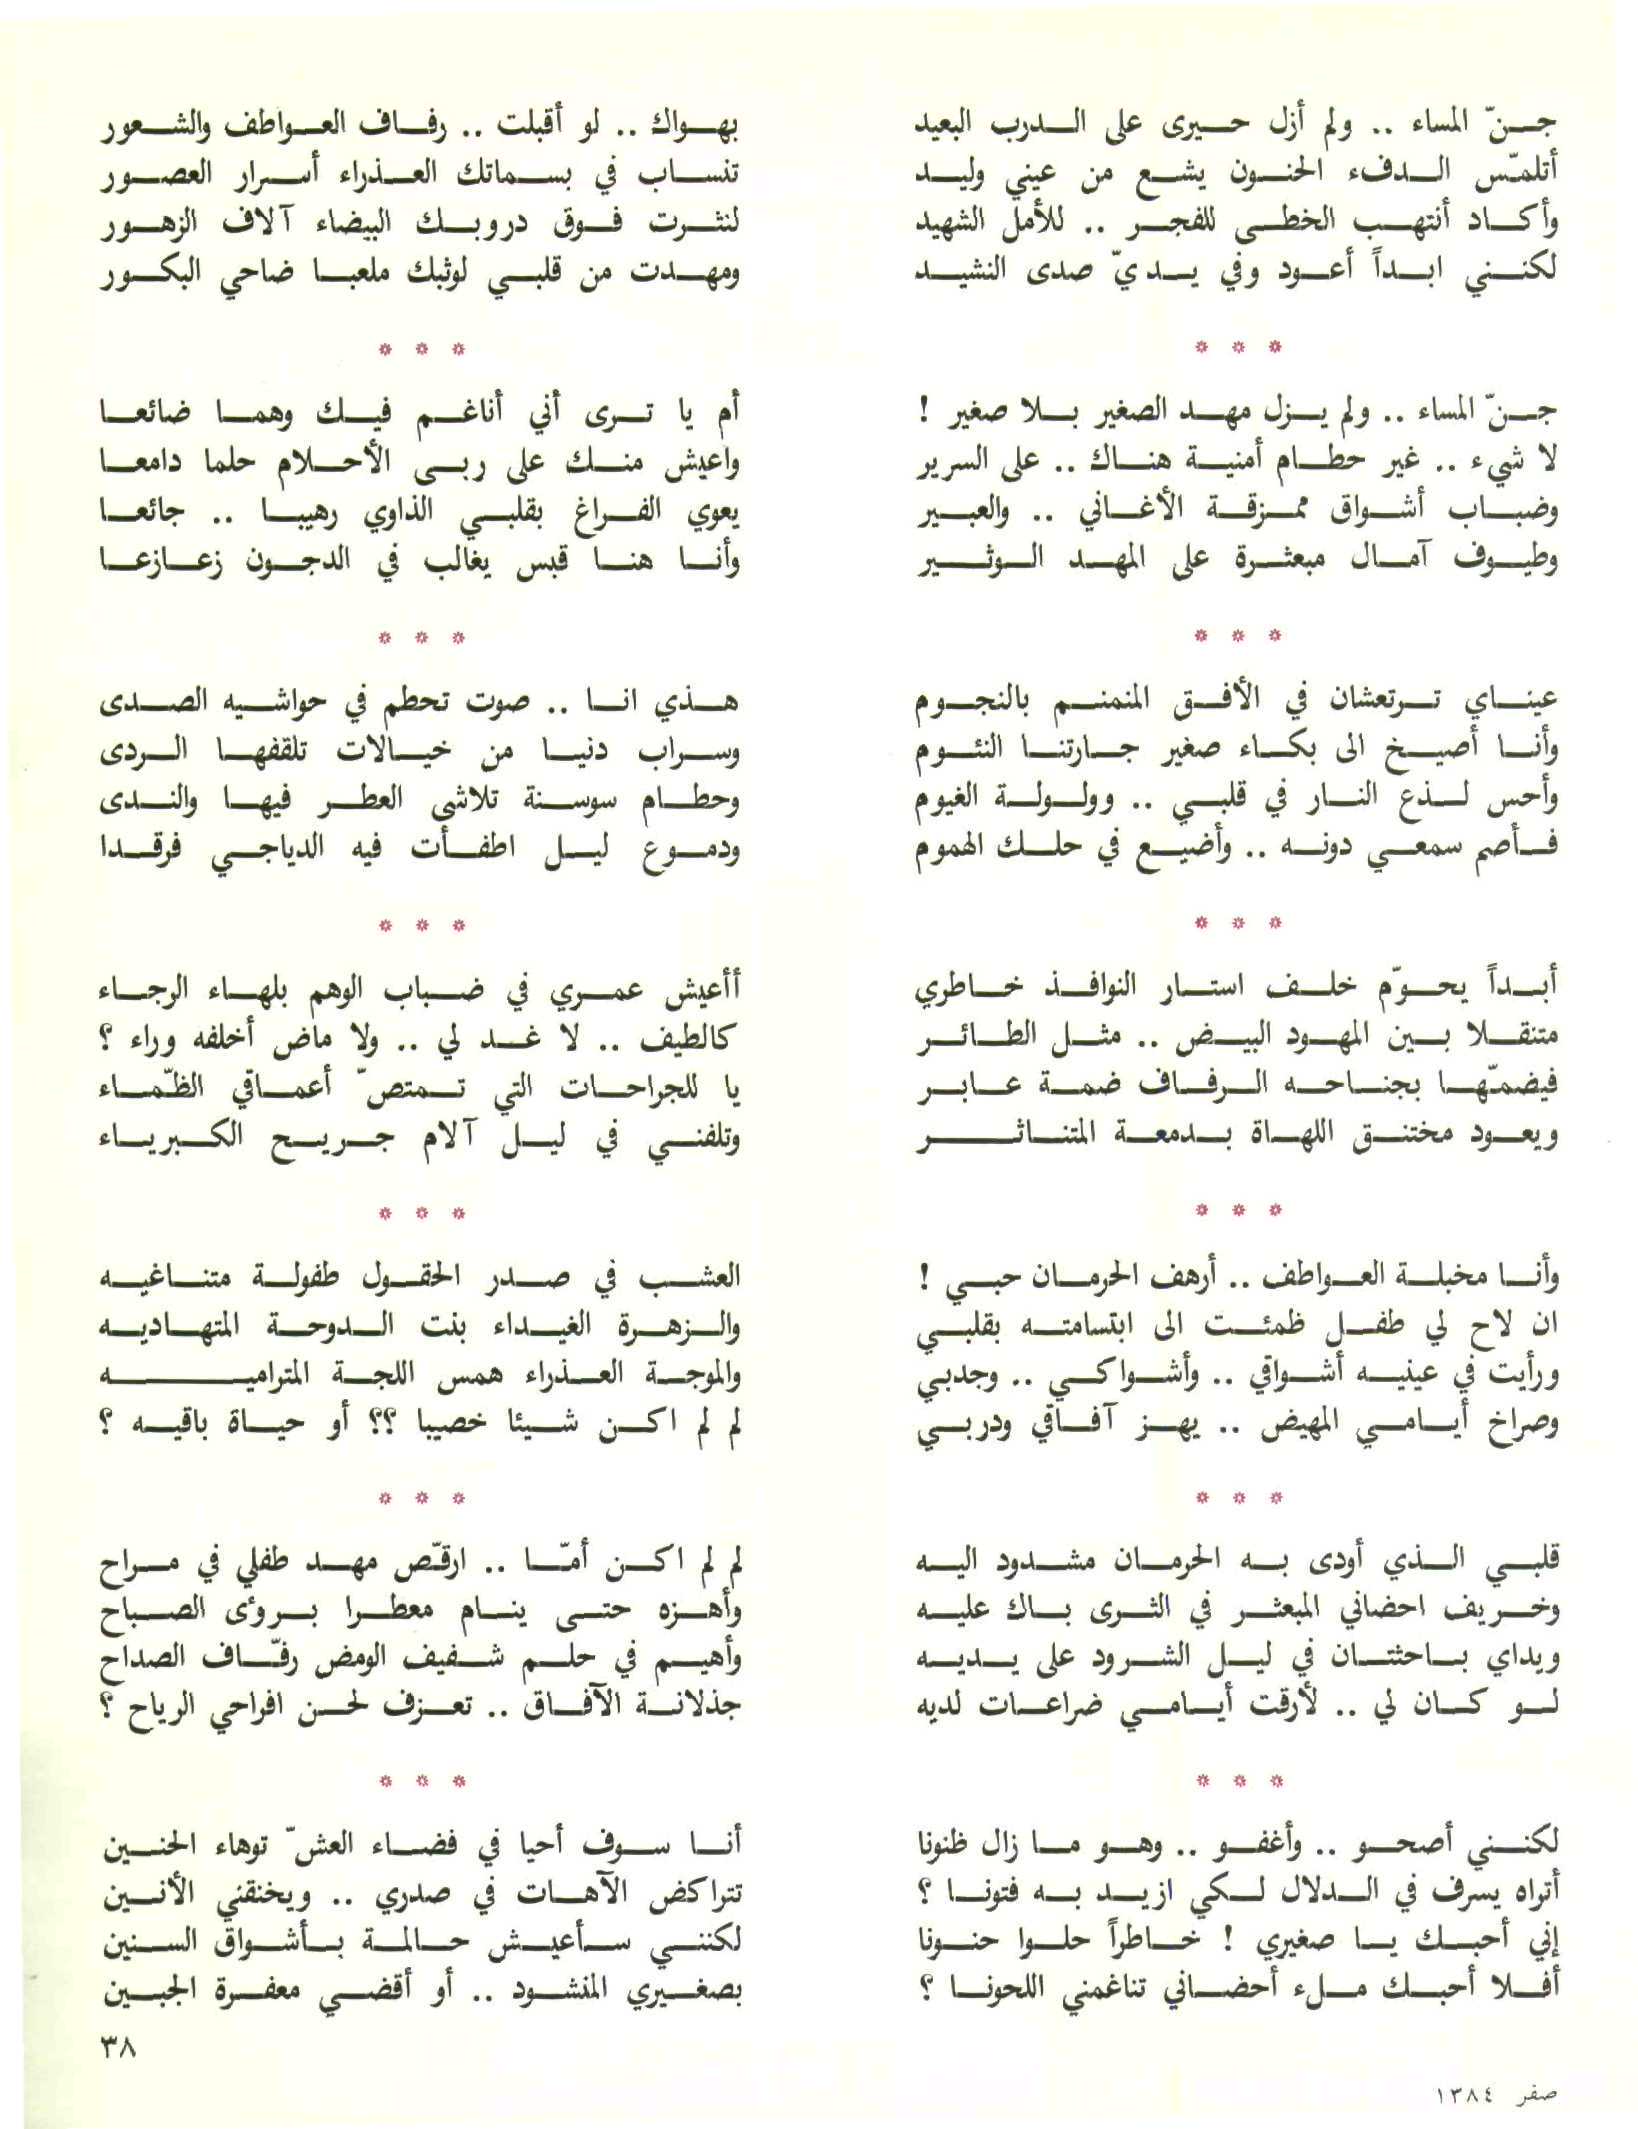 جنّ المساء .. ولم أزل حيرى على الدرب البعيد
أتلمّس الدفء الحنون يشع من عيني وليد
وأكاد أنتهب الخطى للفجر .. للأمل الشهيد
لكنني ابداً أعود وفي يديّ صدى النشيد
* * *
جنّ المساء .. ولم يزل مهد الصغير بلا صغير !
لا شيء .. غير حطام أمنية هناك .. على السرير
وضباب أشواق ممزقة الأغاني .. والعبير
وطيوف آمال مبعثرة على المهد الوثير
* * *
عيناي ترتعشان في الأفق المنمنم بالنجوم
وأنا أصيخ الى بكاء صغير جارتنا النئوم
وأحس لذع النار في قلبي .. وولولة الغيوم
فأصم سمعي دونه .. وأضيع في حلك الهموم
* * *
أبداً يحوّم خلف استار النوافذ خاطري
متنقلا بين المهود البيض .. مثل الطائر
فيضمّها بجناحه الرفاف ضمة عابر
ويعود مختنق اللهاة بدمعة المتناثر
* * *
وأنا مخبلة العواطف .. أرهف الحرمان حبي !
ان لاح لي طفل ظمئت الى ابتسامته بقلبي
ورأيت في عينيه أشواقي .. وأشواكي .. وجدبي
وصراخ أيامي المهيض .. يهز آفاقي ودربي
* * *
قلبي الذي أودى به الحرمان مشدود اليه
وخريف احضاني المبعثر في الثرى باك عليه
ويداي باحثتان في ليل الشرود على يديه
لو كان لي .. لأرقت أيامي ضراعات لديه
* * *
لكنني أصحو .. وأغفو .. وهو ما زال ظنونا
أتراه يسرف في الدلال لكي ازيد به فتونا ؟
إني أحبك يا صغيري ! خاطراً حلوا حنونا
أفلا أحبك ملء أحضاني تناغمني اللحونا ؟
بهواك .. لو أقبلت .. رفاف العواطف والشعور
تنساب في بسماتك العذراء أسرار العصور
لنثرت فوق دروبك البيضاء آلاف الزهور
ومهدت من قلبي لوثبك ملعبا ضاحي البكور
* * *
أم يا ترى أني أناغم فيك وهما ضائعا
واعيش منك على ربى الأحلام حلما دامعا
يعوي الفراغ بقلبي الذاوي رهيبا .. جائعا
وأنا هنا قبس يغالب في الدجون زعازعا
* * *
هذي انا .. صوت تحطم في حواشيه الصدى
وسراب دنيا من خيالات تلقفها الردى
وحطام سوسنة تلاشى العطر فيها والندى
ودموع ليل اطفأت فيه الدياجي فرقدا
* * *
أأعيش عمري في ضباب الوهم بلهاء الرجاء
كالطيف .. لا غد لي .. ولا ماض أخلفه وراء ؟
يا للجراحات التي تمتصّ أعماقي الظّماء
وتلفني في ليل آلام جريح الكبرياء
* * *
العشب في صدر الحقول طفولة متناغيه
والزهرة الغيداء بنت الدوحة المتهاديه
والموجة العذراء همس اللجة المتراميه
لم لم اكن شيئا خصيبا ؟؟ أو حياة باقيه ؟
* * *
لم لم اكن أمّا .. ارقّص مهد طفلي في مراح
وأهزه حتى ينام معطرا برؤى الصباح
وأهيم في حلم شفيف الومض رفّاف الصداح
جذلانة الآفاق .. تعزف لحن افراحي الرياح ؟
* * *
أنا سوف أحيا في فضاء العشّ توهاء الحنين
تتراكض الآهات في صدري .. ويخنقني الأنين
لكنني سأعيش حالمة بأشواق السنين
بصغيري المنشود .. أو أقضي معفرة الجبين
٣٨
صفر ١٣٨٤